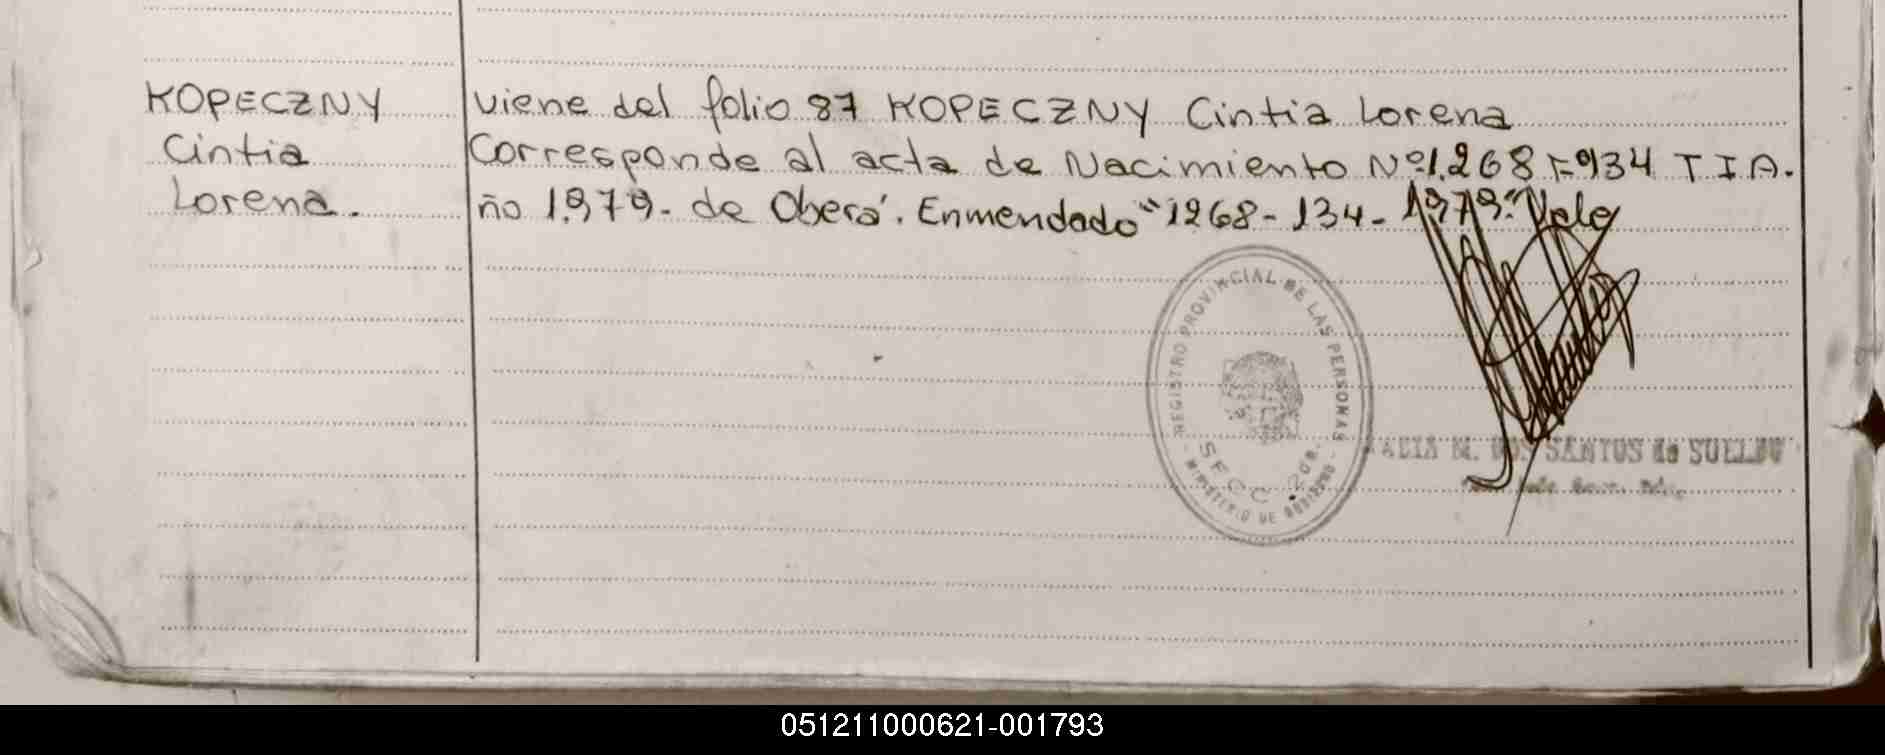 KOPECZNY
Cintia
Lorena.
viene del folio 87 KOPECZNY Cintia Lorena
Corresponde al acta de Nacimiento Nº1.268 Fº134 T I A.
ño 1.979- de Oberá. Enmendado "1268-134-1979" Vale
REGISTRO PROVINCIAL DE LAS PERSONAS
SECC.
- MINISTERIO DE GOBIERNO -
M. DOS SANTOS de
051211000621-001793